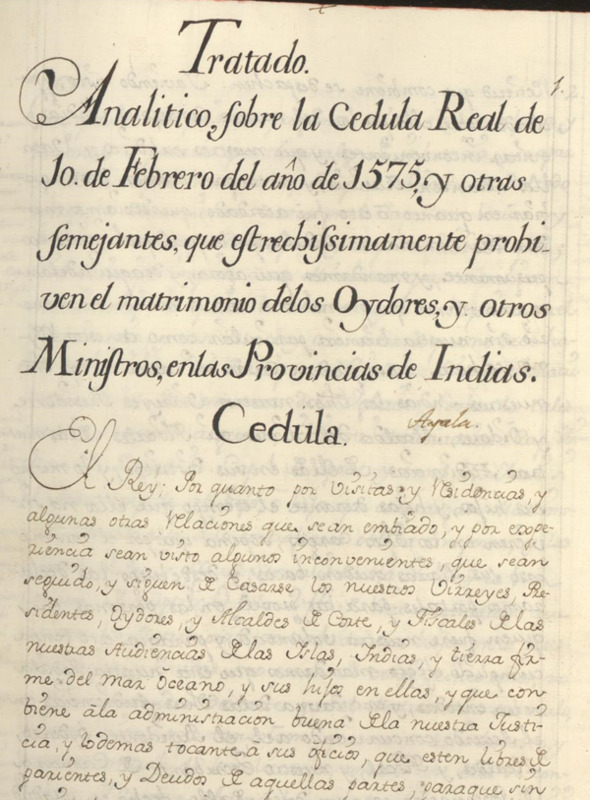 Tratado.
1.
Analitico, sobre la Cedula Real de
10. de Febrero del año de 1575, y otras
semejantes, que estrechissimamente prohi-
ven el matrimonio delos Oydores, y otros
Ministros, enlas Provincias de Indias.
Cedula.
Ayala.
El Rey; Por quanto por Visitas, y Residencias, y
algunas otras Relaciones que sean embiado, y por expe-
riencia sean visto algunos inconvenientes, que sean
seguido, y siguen de Casarse los nuestros Virreyes, Re-
sidentes, Oydores, y Alcaldes de Corte, y Fiscales de las
nuestras Audiencias, de las Islas, Indias, y tierra fir-
me del mar Oceano, y sus hijos en ellas, y que con-
biene âla administracion buena de la nuestra Justi-
cia, y lodemas tocante a sus oficios, que esten libres de
parientes, y Deudos de aquellas partes, paraque sin